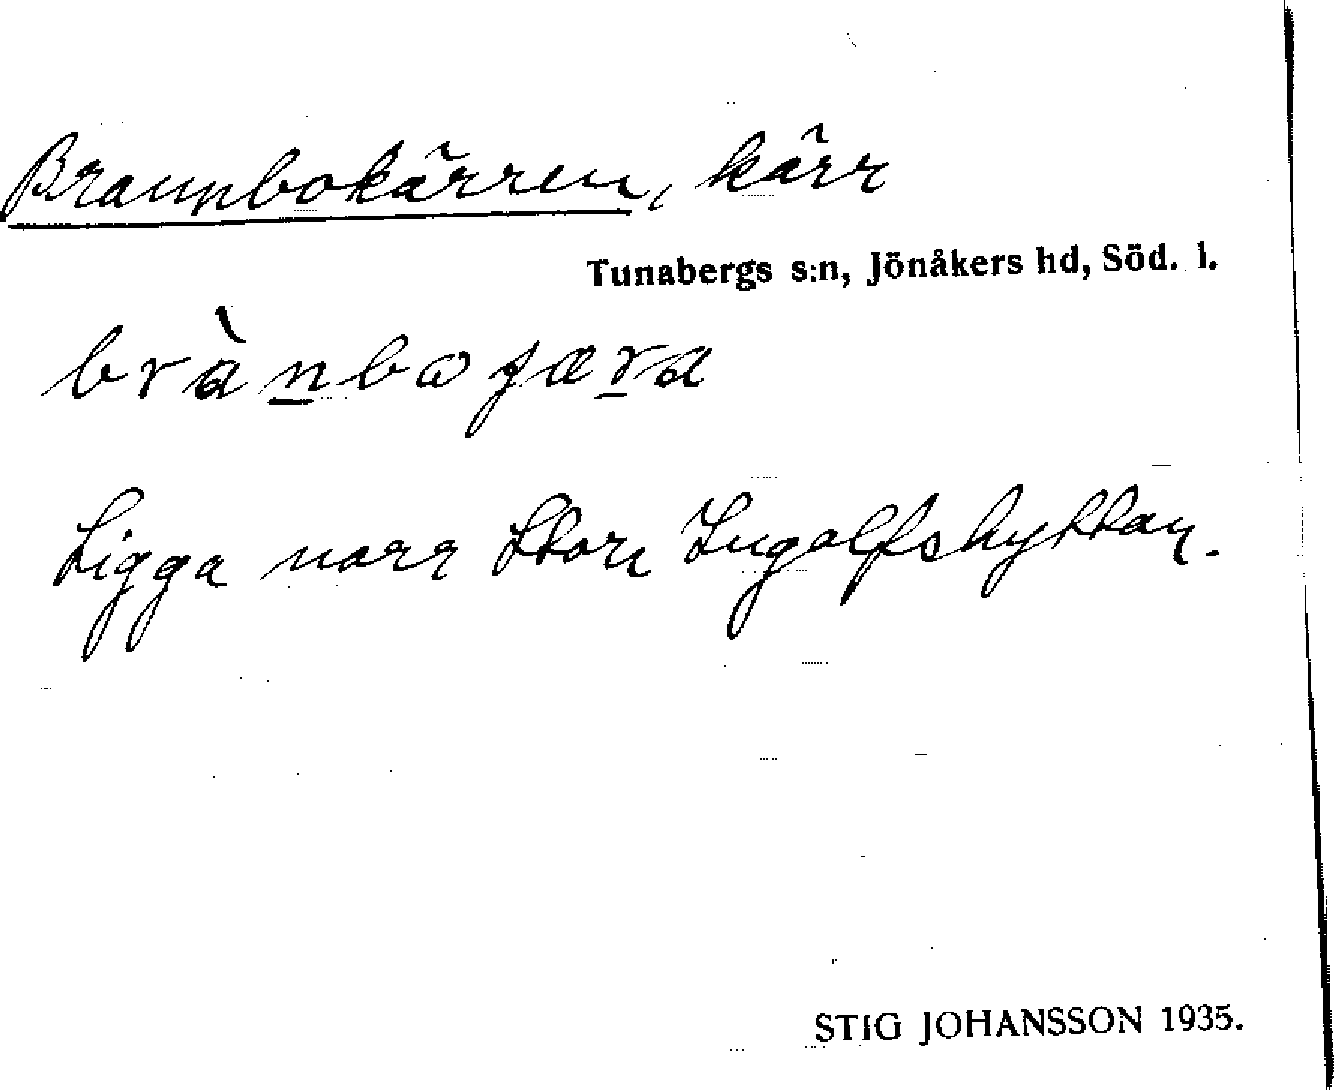 Brannbokärren, kärr
Tunabergs s:n, Jönåkers hd, Söd. l.
Ligga norr Stora Ingolfshyttan.
STIG JOHANSSON 1935.